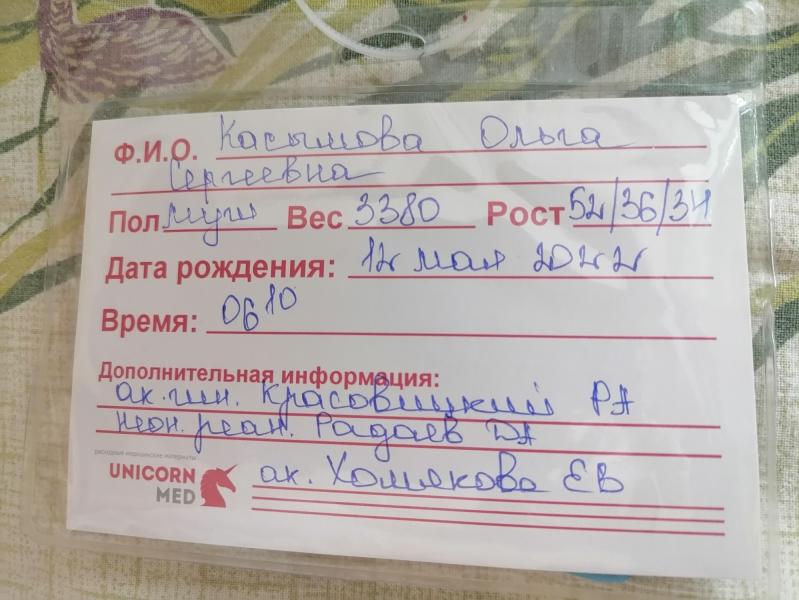 Ф.И.О. Касымова Ольга
Сергеевна
Пол муж Вес 3380 Рост 52/36/34
Дата рождения: 12 мая 2022
Время: 06 10
Дополнительная информация:
ак. гин. Красовицкий РА
неон. реан. Радаев ДА
расходные медицинские материалы
UNICORN
MED
ак. Хомякова ЕВ